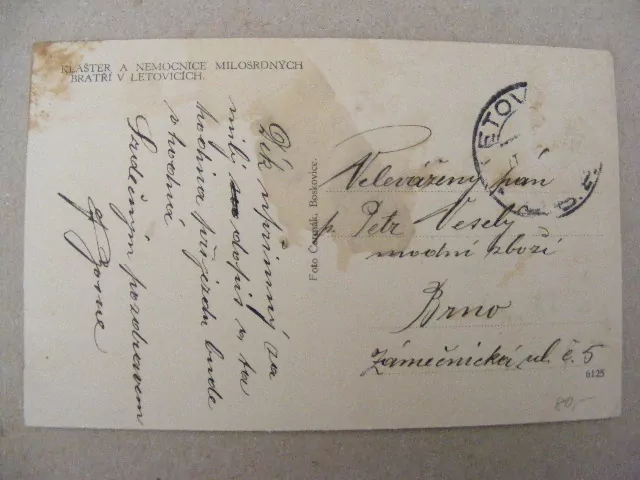 KLÁŠTER A NEMOCNICE MILOSRDNÝCH
BRATŘÍ V LETOVICÍCH.
Dík upřímný za
milý dopis a ta
hodina příjezdu bude
vhodná
Srdečným pozdravem
Foto Čermák, Boskovice.
LETOV
Velevážený pán
p. Petr Veselý
modní zboží
Brno
Zámečnická ul. č. 5
6125
80,-